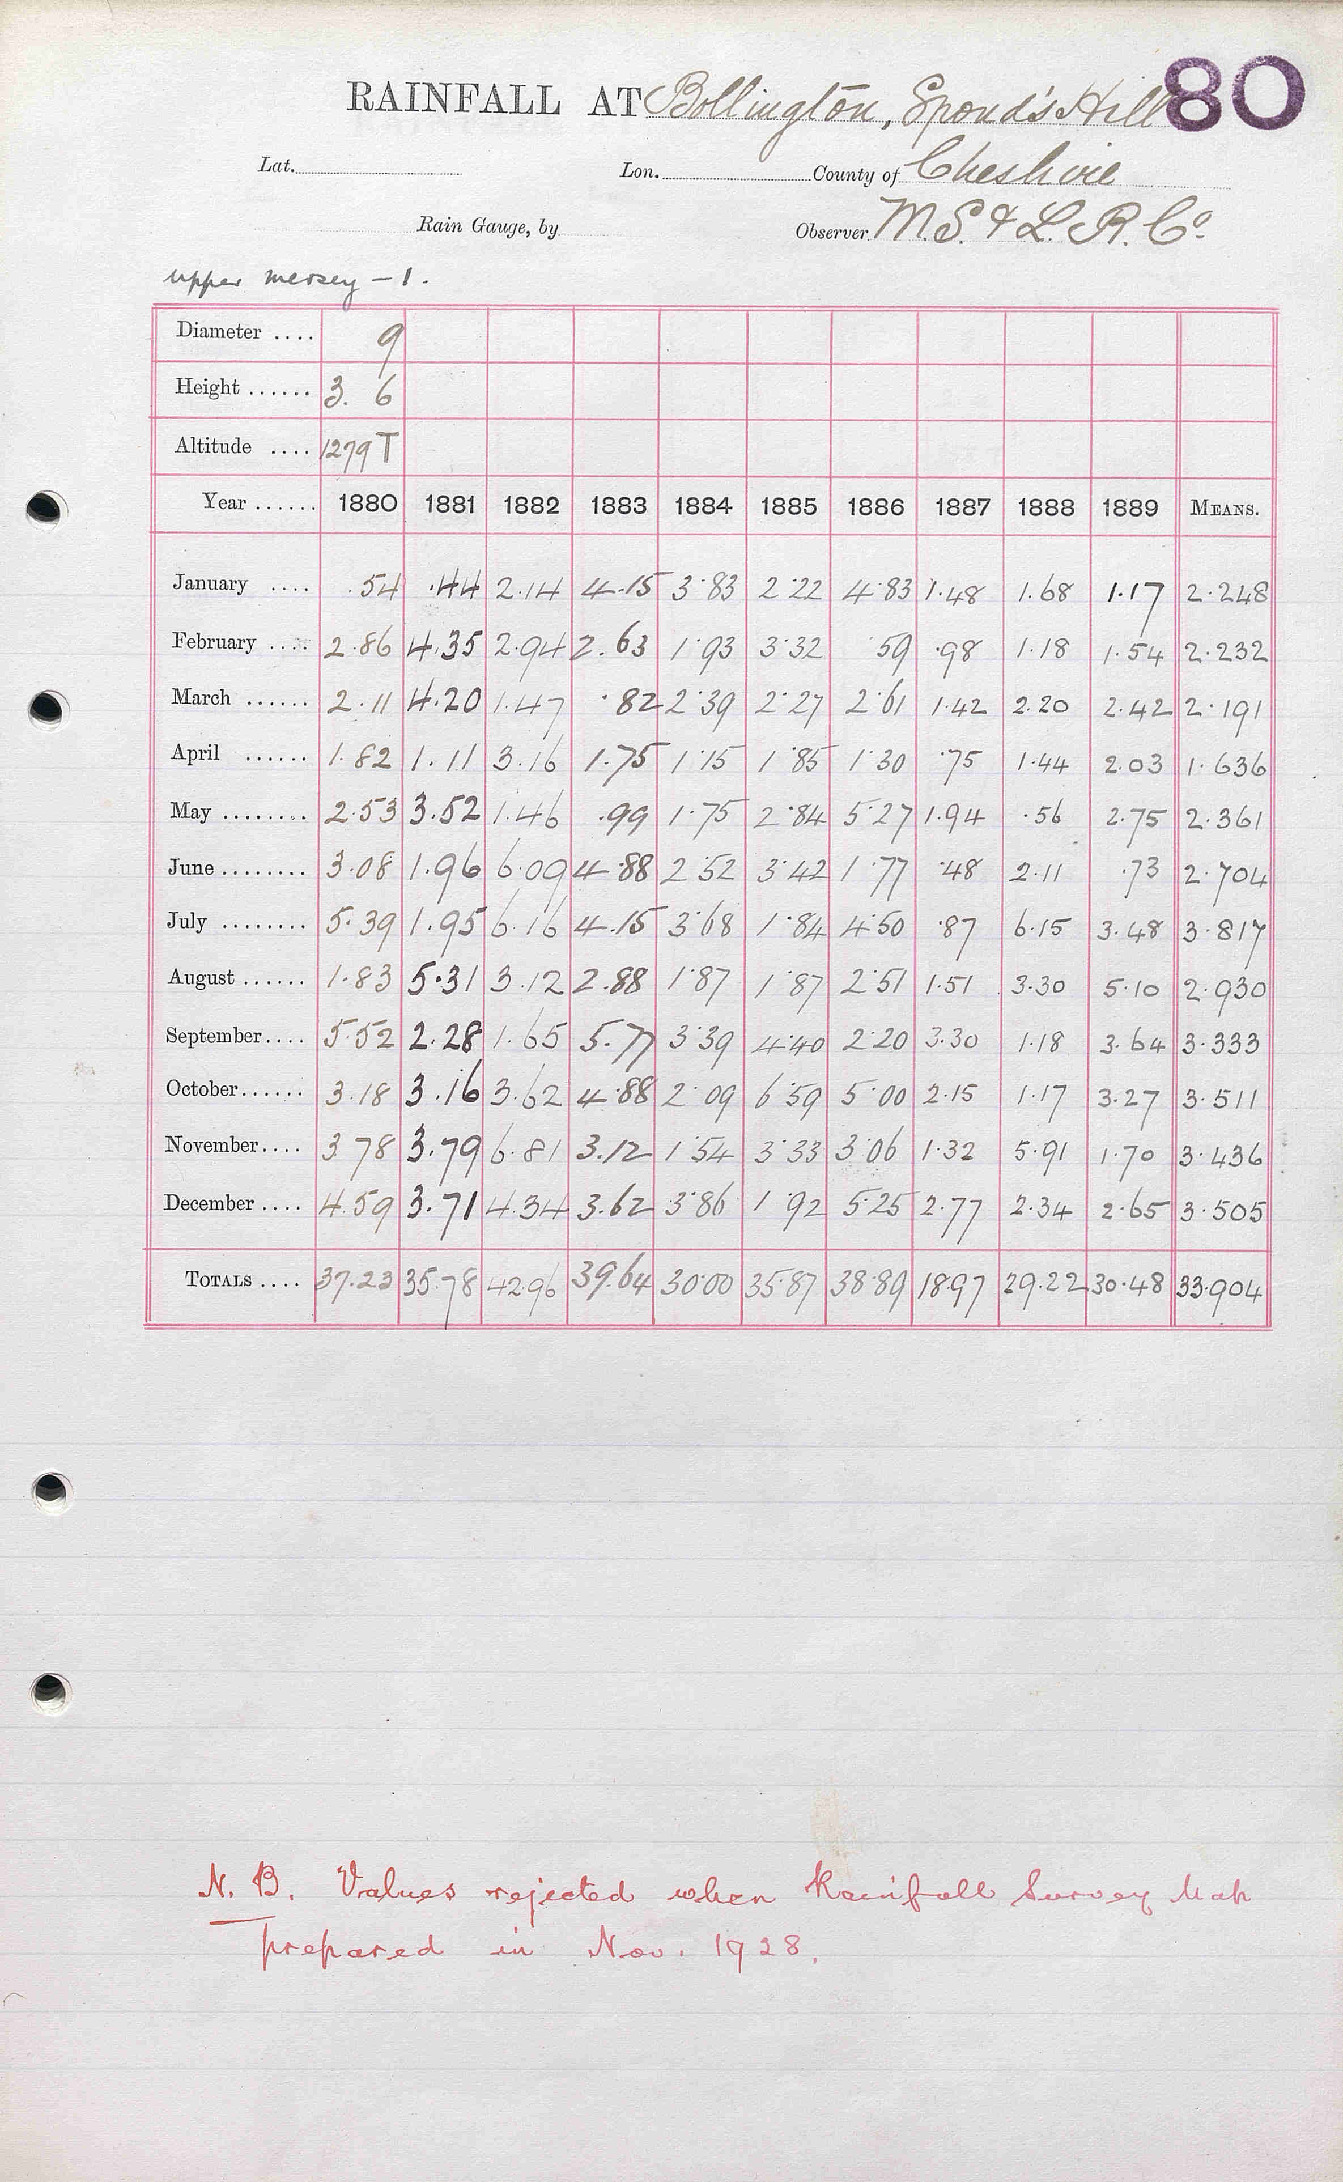 80
RAINFALL AT Bollington, Spond's Hill
Lat. Lon. County of Cheshire
Rain Gauge, by Observer M.S. & L. R. Co.
Upper Mersey - 1.
Diameter .... 9
Height ...... 3. 6
Altitude .... 1279 T
Year ...... 1880 1881 1882 1883 1884 1885 1886 1887 1888 1889 MEANS.
January .... .54 .44 2.14 4.15 3.83 2.22 4.83 1.48 1.68 1.17 2.248
February .... 2.86 4.35 2.94 2.63 1.93 3.32 .59 .98 1.18 1.54 2.232
March ...... 2.11 4.20 1.47 .82 2.39 2.27 2.61 1.42 2.20 2.42 2.191
April ...... 1.82 1.11 3.16 1.75 1.15 1.85 1.30 .75 1.44 2.03 1.636
May ........ 2.53 3.52 1.46 .99 1.75 2.84 5.27 1.94 .56 2.75 2.361
June ........ 3.08 1.96 6.09 4.88 2.52 3.42 1.77 .48 2.11 .73 2.704
July ........ 5.39 1.95 6.16 4.15 3.68 1.84 4.50 .87 6.15 3.48 3.817
August ...... 1.83 5.31 3.12 2.88 1.87 1.87 2.51 1.51 3.30 5.10 2.930
September .... 5.52 2.28 1.65 5.77 3.39 4.40 2.20 3.30 1.18 3.64 3.333
October ...... 3.18 3.16 3.62 4.88 2.09 6.59 5.00 2.15 1.17 3.27 3.511
November .... 3.78 3.79 6.81 3.12 1.54 3.33 3.06 1.32 5.91 1.70 3.436
December .... 4.59 3.71 4.34 3.62 3.86 1.92 5.25 2.77 2.34 2.65 3.505
TOTALS .... 37.23 35.78 42.96 39.64 30.00 35.87 38.89 18.97 29.22 30.48 33.904
N. B. Values rejected when Rainfall Survey Map
prepared in Nov. 1928.